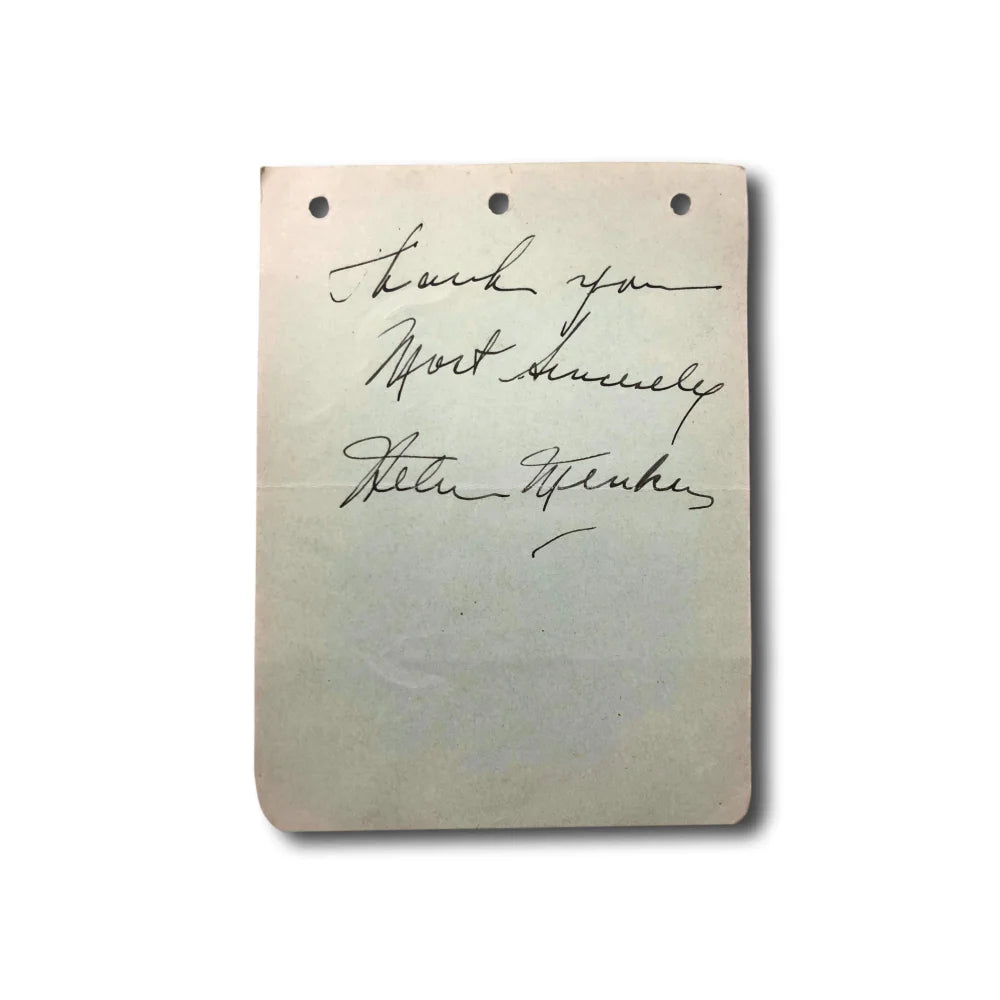 Thank you
Most Sincerely
Helen Menken